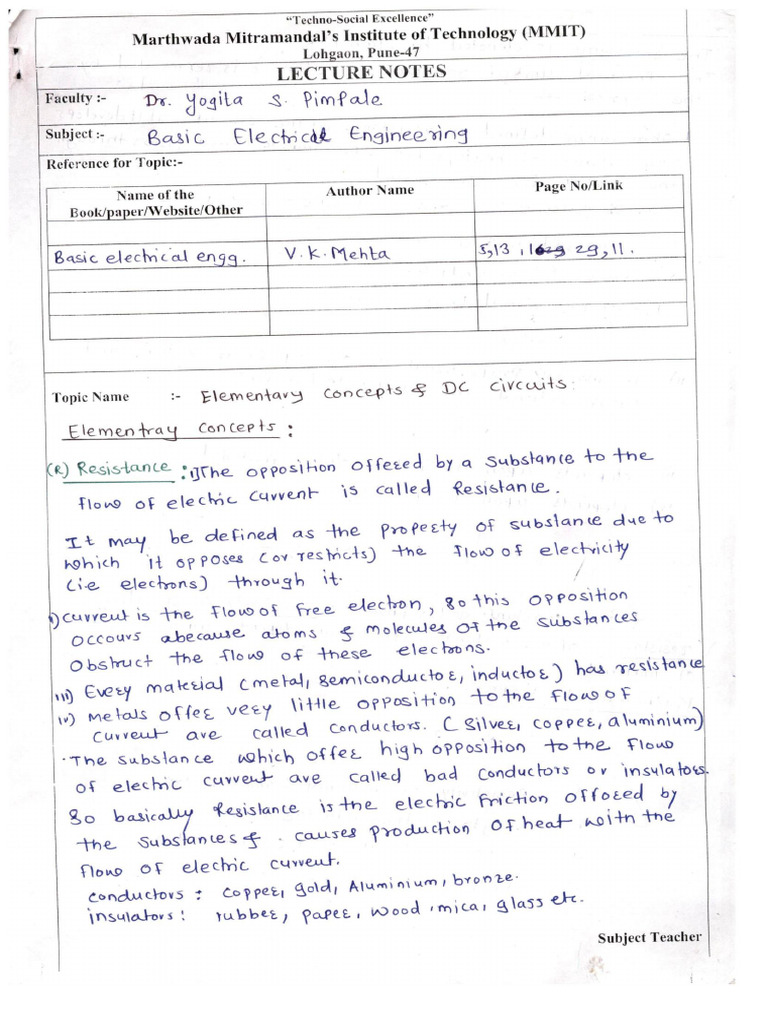 "Techno-Social Excellence"
Marthwada Mitramandal's Institute of Technology (MMIT)
Lohgaon, Pune-47
LECTURE NOTES
Faculty :- Dr. Yogita S. Pimpale
Subject :- Basic Electrical Engineering
Reference for Topic:-
Name of the Book/paper/Website/Other Author Name Page No/Link
Basic electrical engg. V.K.Mehta 5,13, 29,11.
Topic Name :- Elementary concepts & DC circuits
Elementray concepts :
(R) Resistance : i) The opposition offered by a substance to the
flow of electric current is called Resistance.
It may be defined as the property of substance due to
which it opposes (or restricts) the flow of electricity
(i.e electrons) through it.
ii) current is the flow of free electron, so this opposition
occours abecause atoms & molecules of the substances
obstruct the flow of these electrons.
iii) Every material (metal, semiconductor, inductor) has resistance
iv) metals offer very little opposition to the flow of
current are called conductors. (silver, copper, aluminium)
. The substance which offer high opposition to the flow
of electric current are called bad conductors or insulators.
So basically Resistance is the electric friction offored by
the substances & . causes production of heat with the
flow of electric current.
conductors : copper, gold, Aluminium, bronze.
insulators : rubber, paper, wood, mica, glass etc.
Subject Teacher